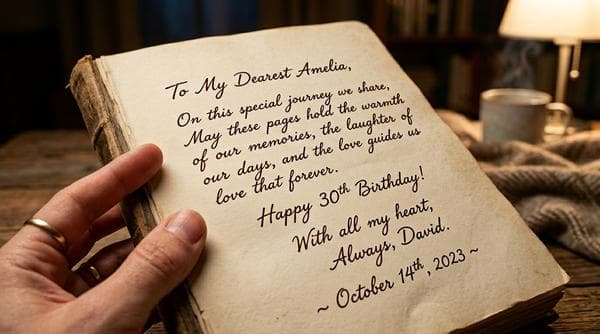 To My Dearest Amelia,
On this special journey we share,
May these pages hold the warmth
of our memories, the laughter of
our days, and the love guides us
love that forever.
Happy 30th Birthday!
With all my heart,
Always, David.
~ October 14th, 2023 ~